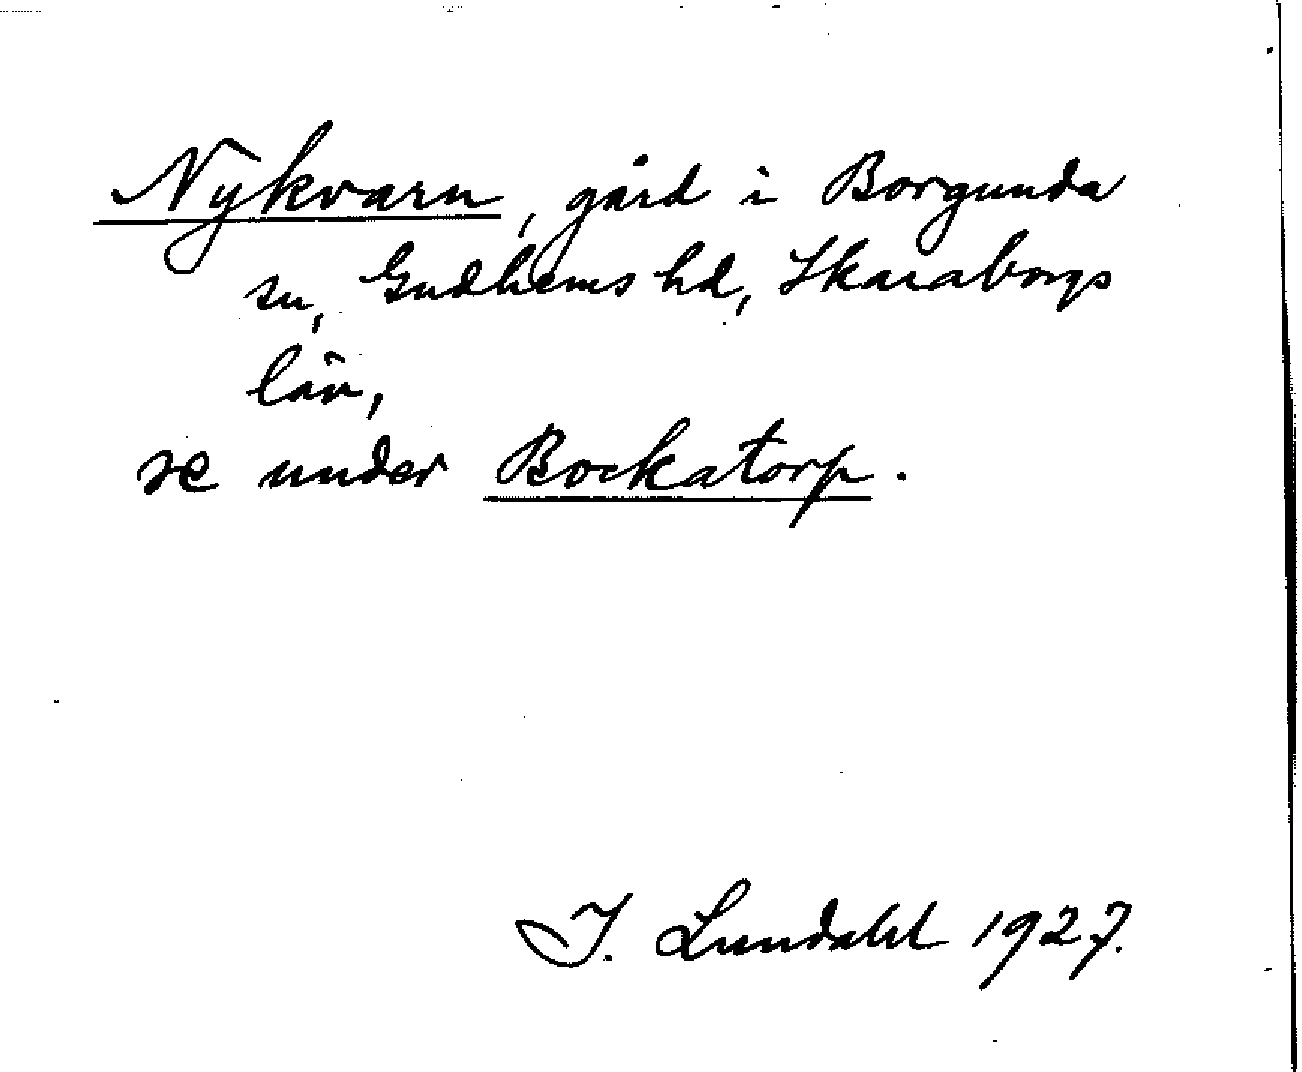 Nykvarn, gård i Borgunda
sn, Gudhems hd, Skaraborgs
län,
se under Bockatorp.
I. Lundahl 1927.